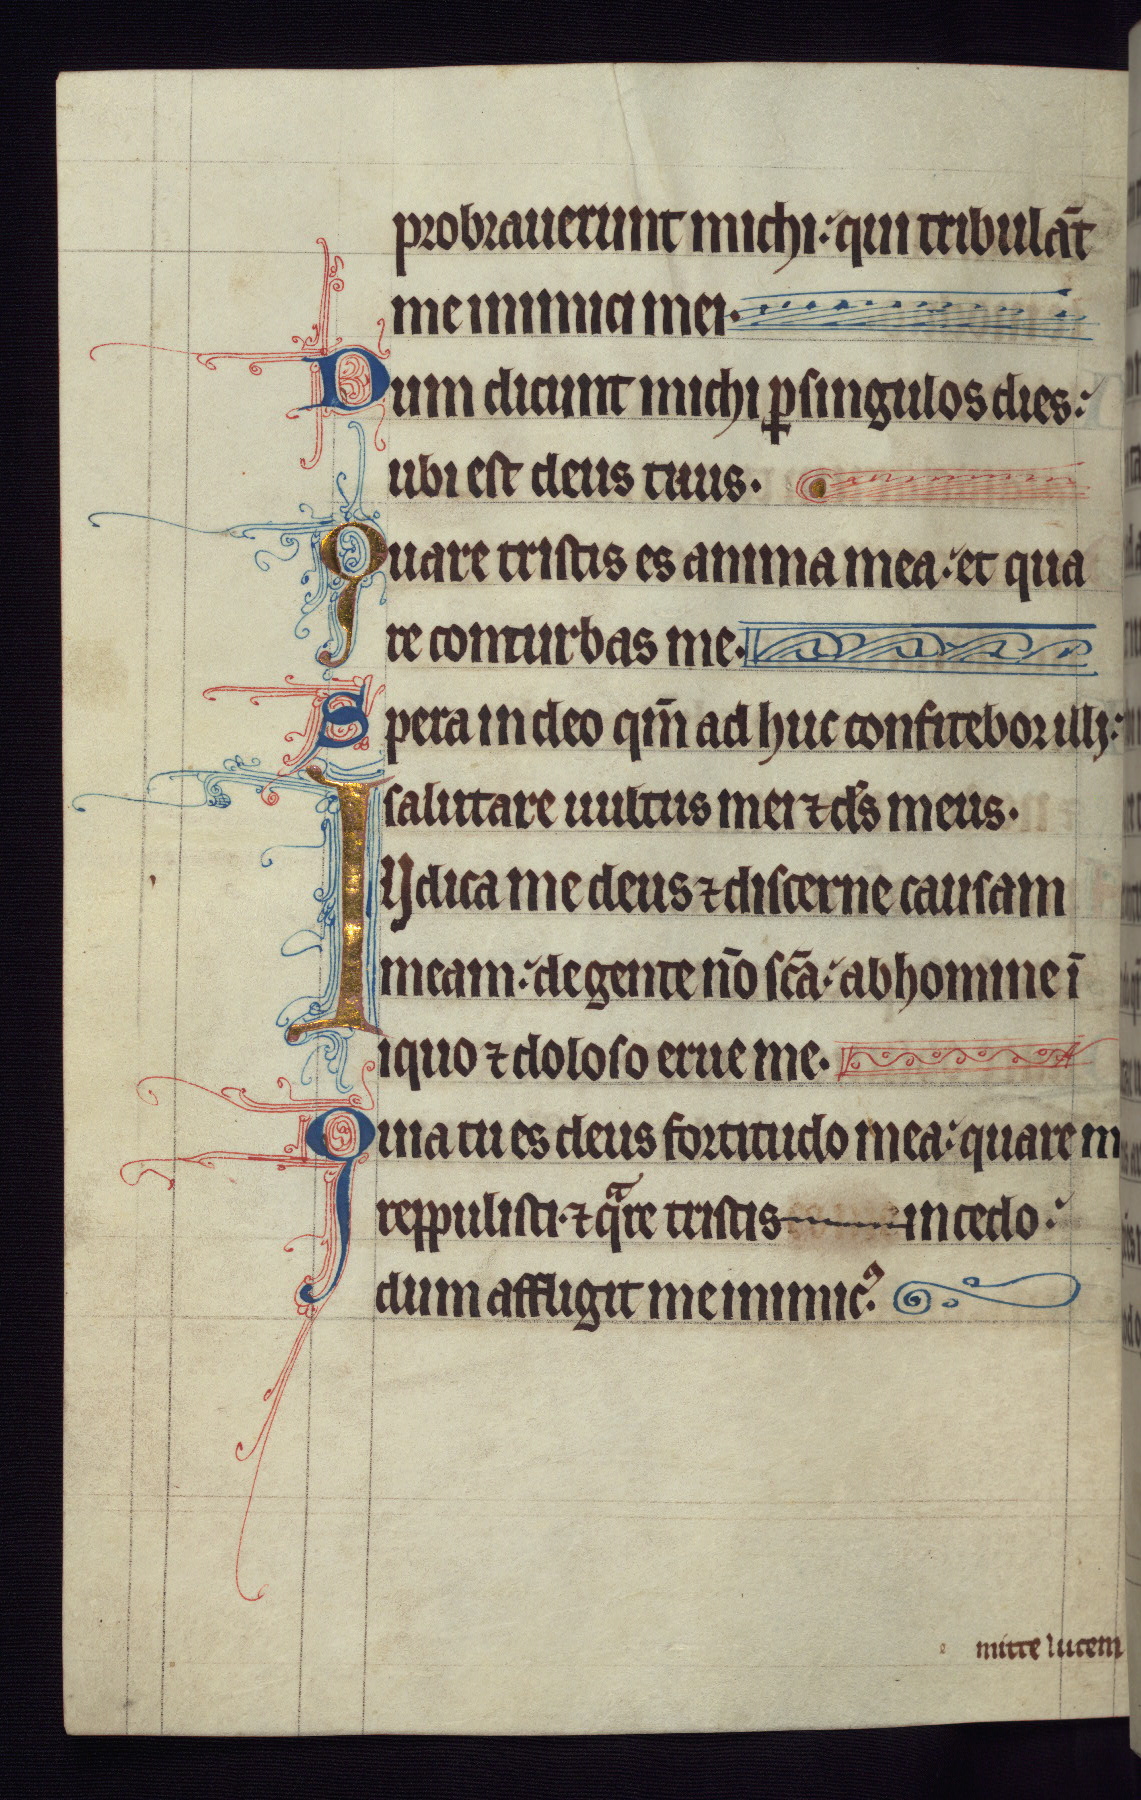 probrauerunt michi: qui tribulāt
me inimici mei.
Dum dicunt michi ꝑ singulos dies:
ubi est deus tuus.
Quare tristis es anima mea: et qua
re conturbas me.
Spera in deo qm̄ ad huc confitebor illi:
salutare uultus mei ⁊ ds̄ meus.
IVdica me deus ⁊ discerne causam
meam: de gente nō sc̄a: ab homine ī
iquo ⁊ doloso erue me.
Quia tu es deus fortitudo mea: quare m
reppulisti. ⁊ qͣre tristis incedo:
dum affligit me inimicꝰ.
mitte lucem